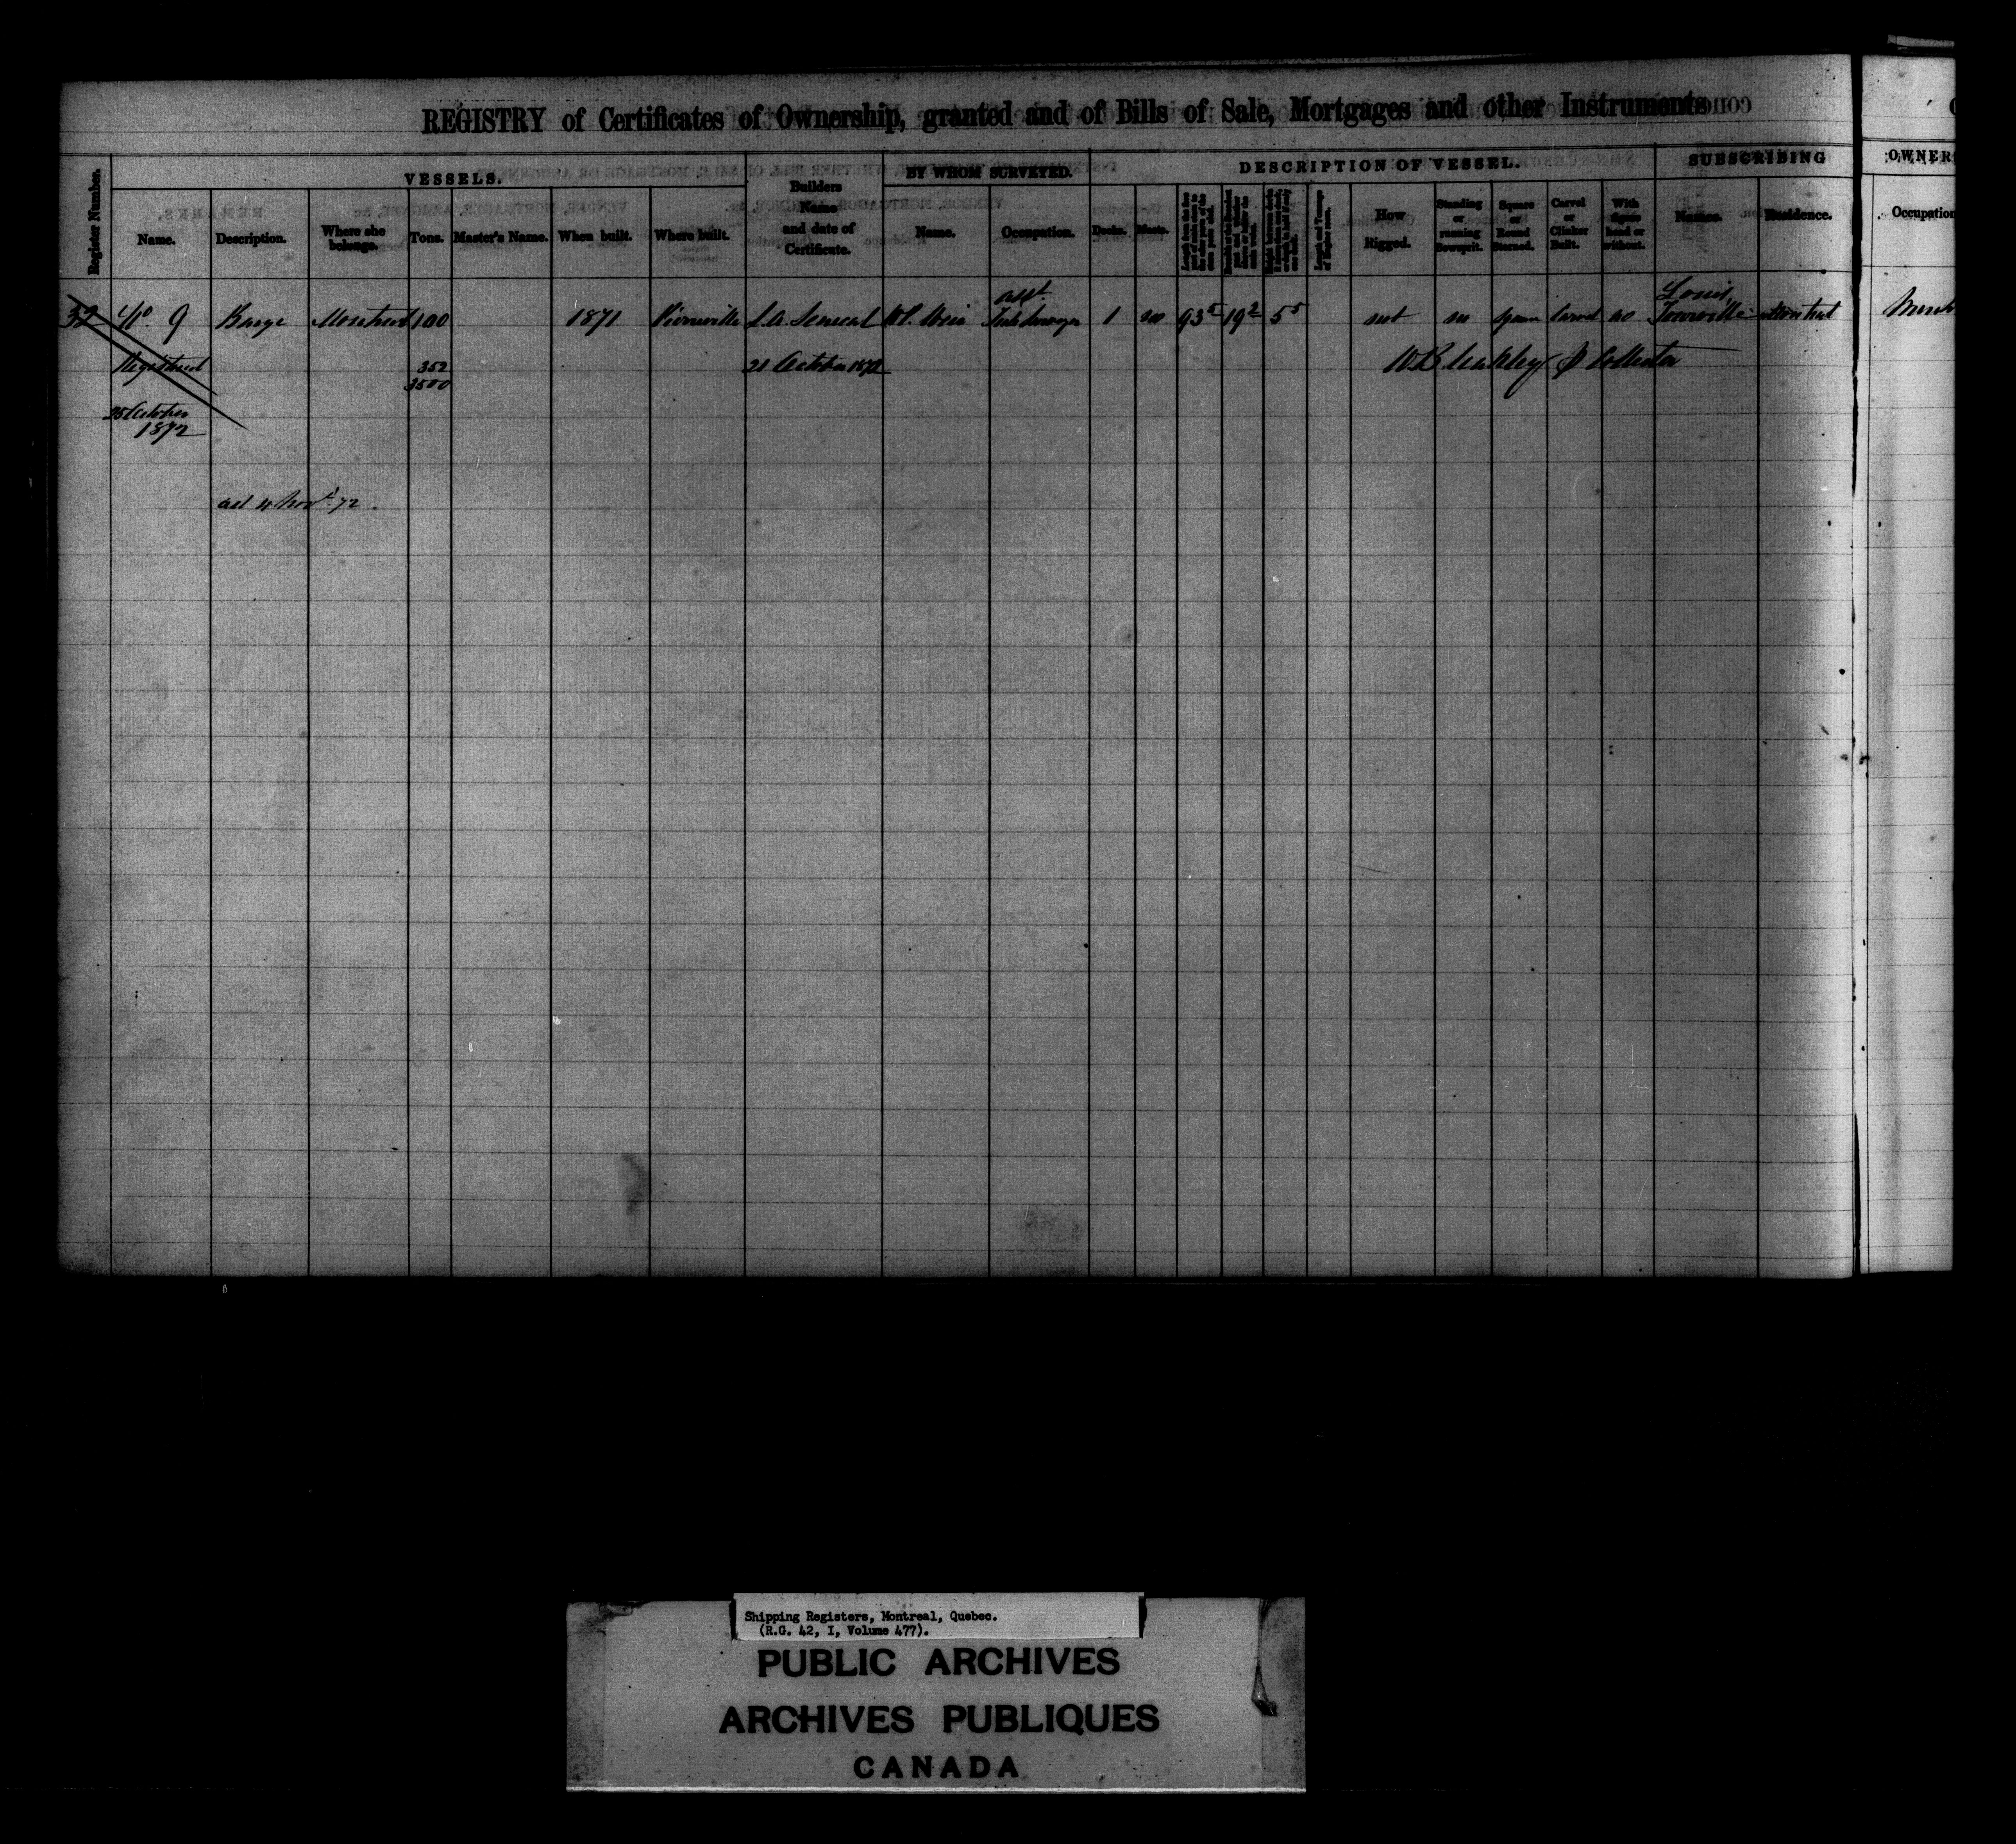 REGISTRY of Certificates of Ownership, granted and of Bills of Sale, Mortgages and other Instruments
Register Number.
VESSELS.
Builders Name and date of Certificate.
BY WHOM SURVEYED.
DESCRIPTION OF VESSEL.
SUBSCRIBING
OWNER
Name.
Description.
Where she belongs.
Tons.
Master's Name.
When built.
Where built.
Name.
Occupation.
Decks.
Masts.
How Rigged.
Standing or running Bowsprit.
Square or Round Sterned.
Carvel or Clinker Built.
With figure head or without.
Names.
Residence.
Occupation
32 No. 9 Barge Montreal 100 1871 Pierreville L. A. Senecal W. P. asst. 1 no 93 5 19 2 5 5 not no square carvel no Louis Tourville Montreal Merch
Registered 352 21 October 1872 W B leakley Collector
3500
25 October
1872
4 Nov. 72
Shipping Registers, Montreal, Quebec.
(R.G. 42, I, Volume 477).
PUBLIC ARCHIVES
ARCHIVES PUBLIQUES
CANADA